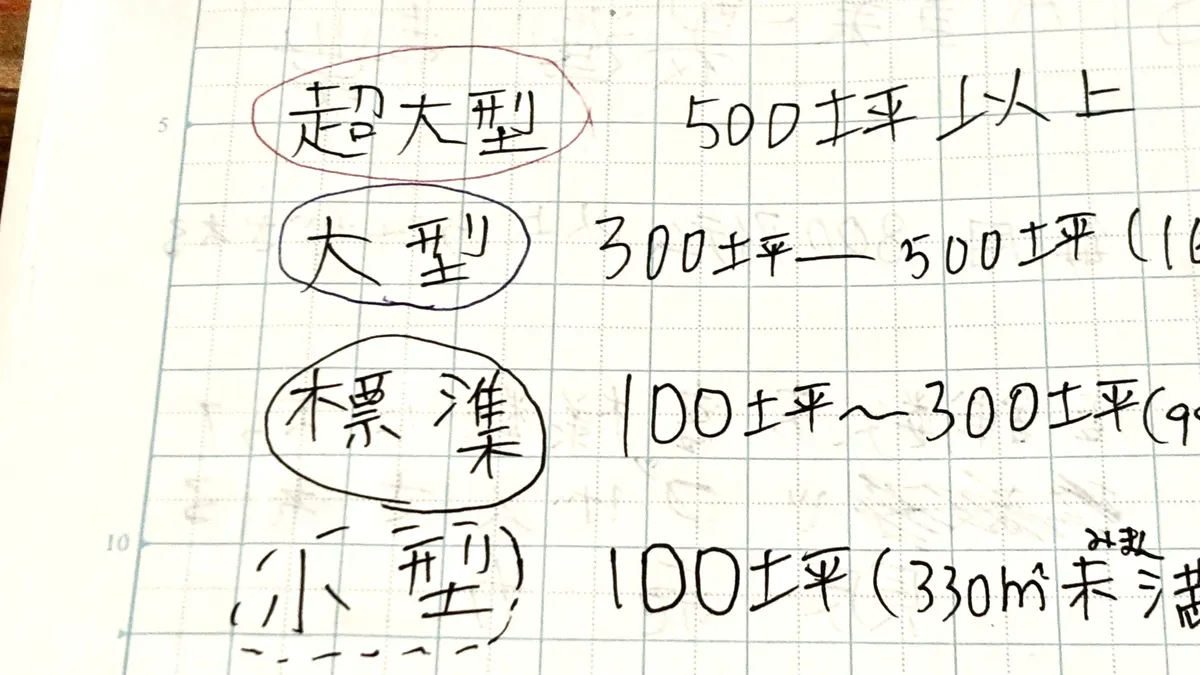 5
超大型 500坪以上
大型 300坪—500坪(16
標準 100坪〜300坪(99
みまん
10
小型 100坪(330㎡未満